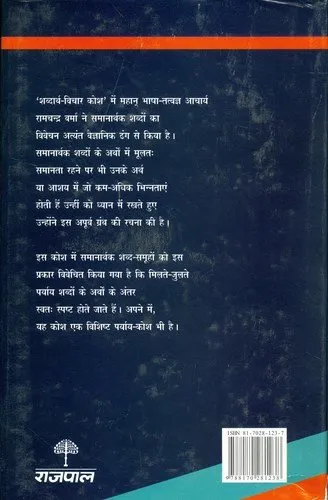 'शब्दार्थ-विचार कोश' में महान् भाषा-तत्वज्ञ आचार्य
रामचन्द्र वर्मा ने समानार्थक शब्दों का
विवेचन अत्यंत वैज्ञानिक ढंग से किया है।
समानार्थक शब्दों के अर्थों में मूलतः
समानता रहने पर भी उनके अर्थ
या आशय में जो कम-अधिक भिन्नताएं
होती हैं उन्हीं को ध्यान में रखते हुए
उन्होंने इस अपूर्व ग्रंथ की रचना की है।
इस कोश में समानार्थक शब्द-समूहों को इस
प्रकार विवेचित किया गया है कि मिलते-जुलते
पर्याय शब्दों के अर्थों के अंतर
स्वतः स्पष्ट होते जाते हैं। अपने में,
यह कोश एक विशिष्ट पर्याय-कोश भी है।
ISBN 81-7028-123-7
9788170281238
राजपाल